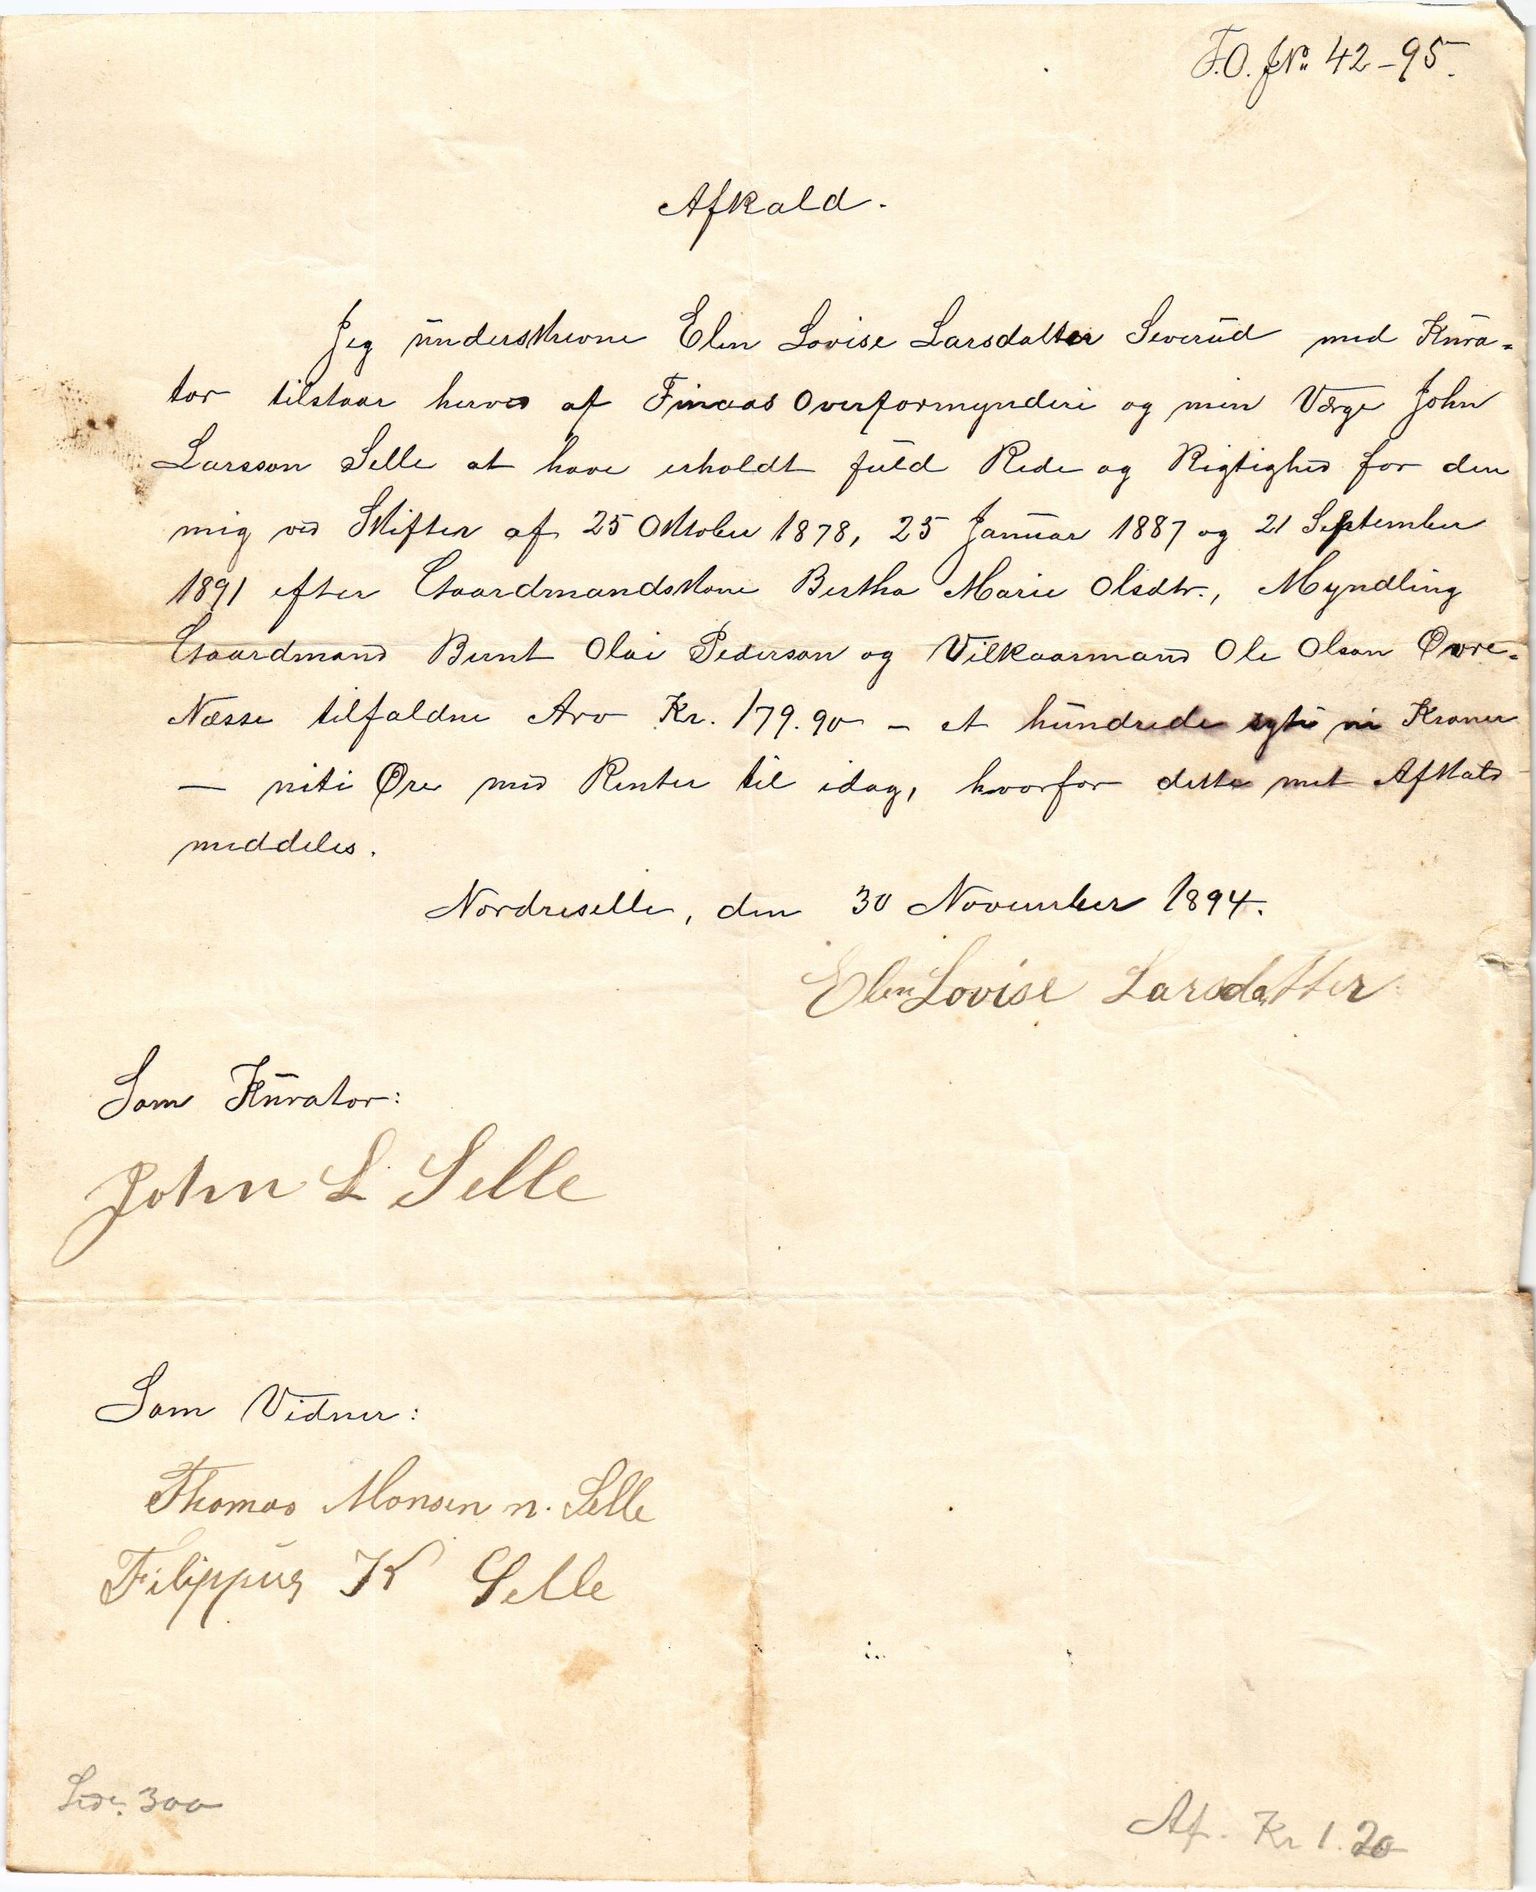 F.O. JNo. 42-95.
Afkald.
Jeg underskrevne Elen Lovise Larsdatter Severud med Kura-
tor tilstaar herved af Finaas Overformynderi og min Værge John
Larsson Selle at have erholdt fuld Rede og Rigtighed for den
mig ved Skifter af 25 Oktober 1878, 25 Januar 1887 og 21 September
1891 efter Gaardmandskone Bertha Marie Olsdtr., Myndling
Gaardmand Bernt Olai Pederson og Vilkaarmand Ole Olson Øvre-
Næsse tilfaldne Arv Kr. 179.90 - et hundrede sytti ni Kroner
- niti Øre med Renter til idag, hvorfor dette mit Afkald
meddeles.
Nordreselle, den 30 November 1894.
Elen Lovise Larsdatter
Som Kurator:
John L Selle
Som Vidner:
Thomas Monsen n. Selle
Filippus K Selle
Side. 300
Af. Kr 1.20